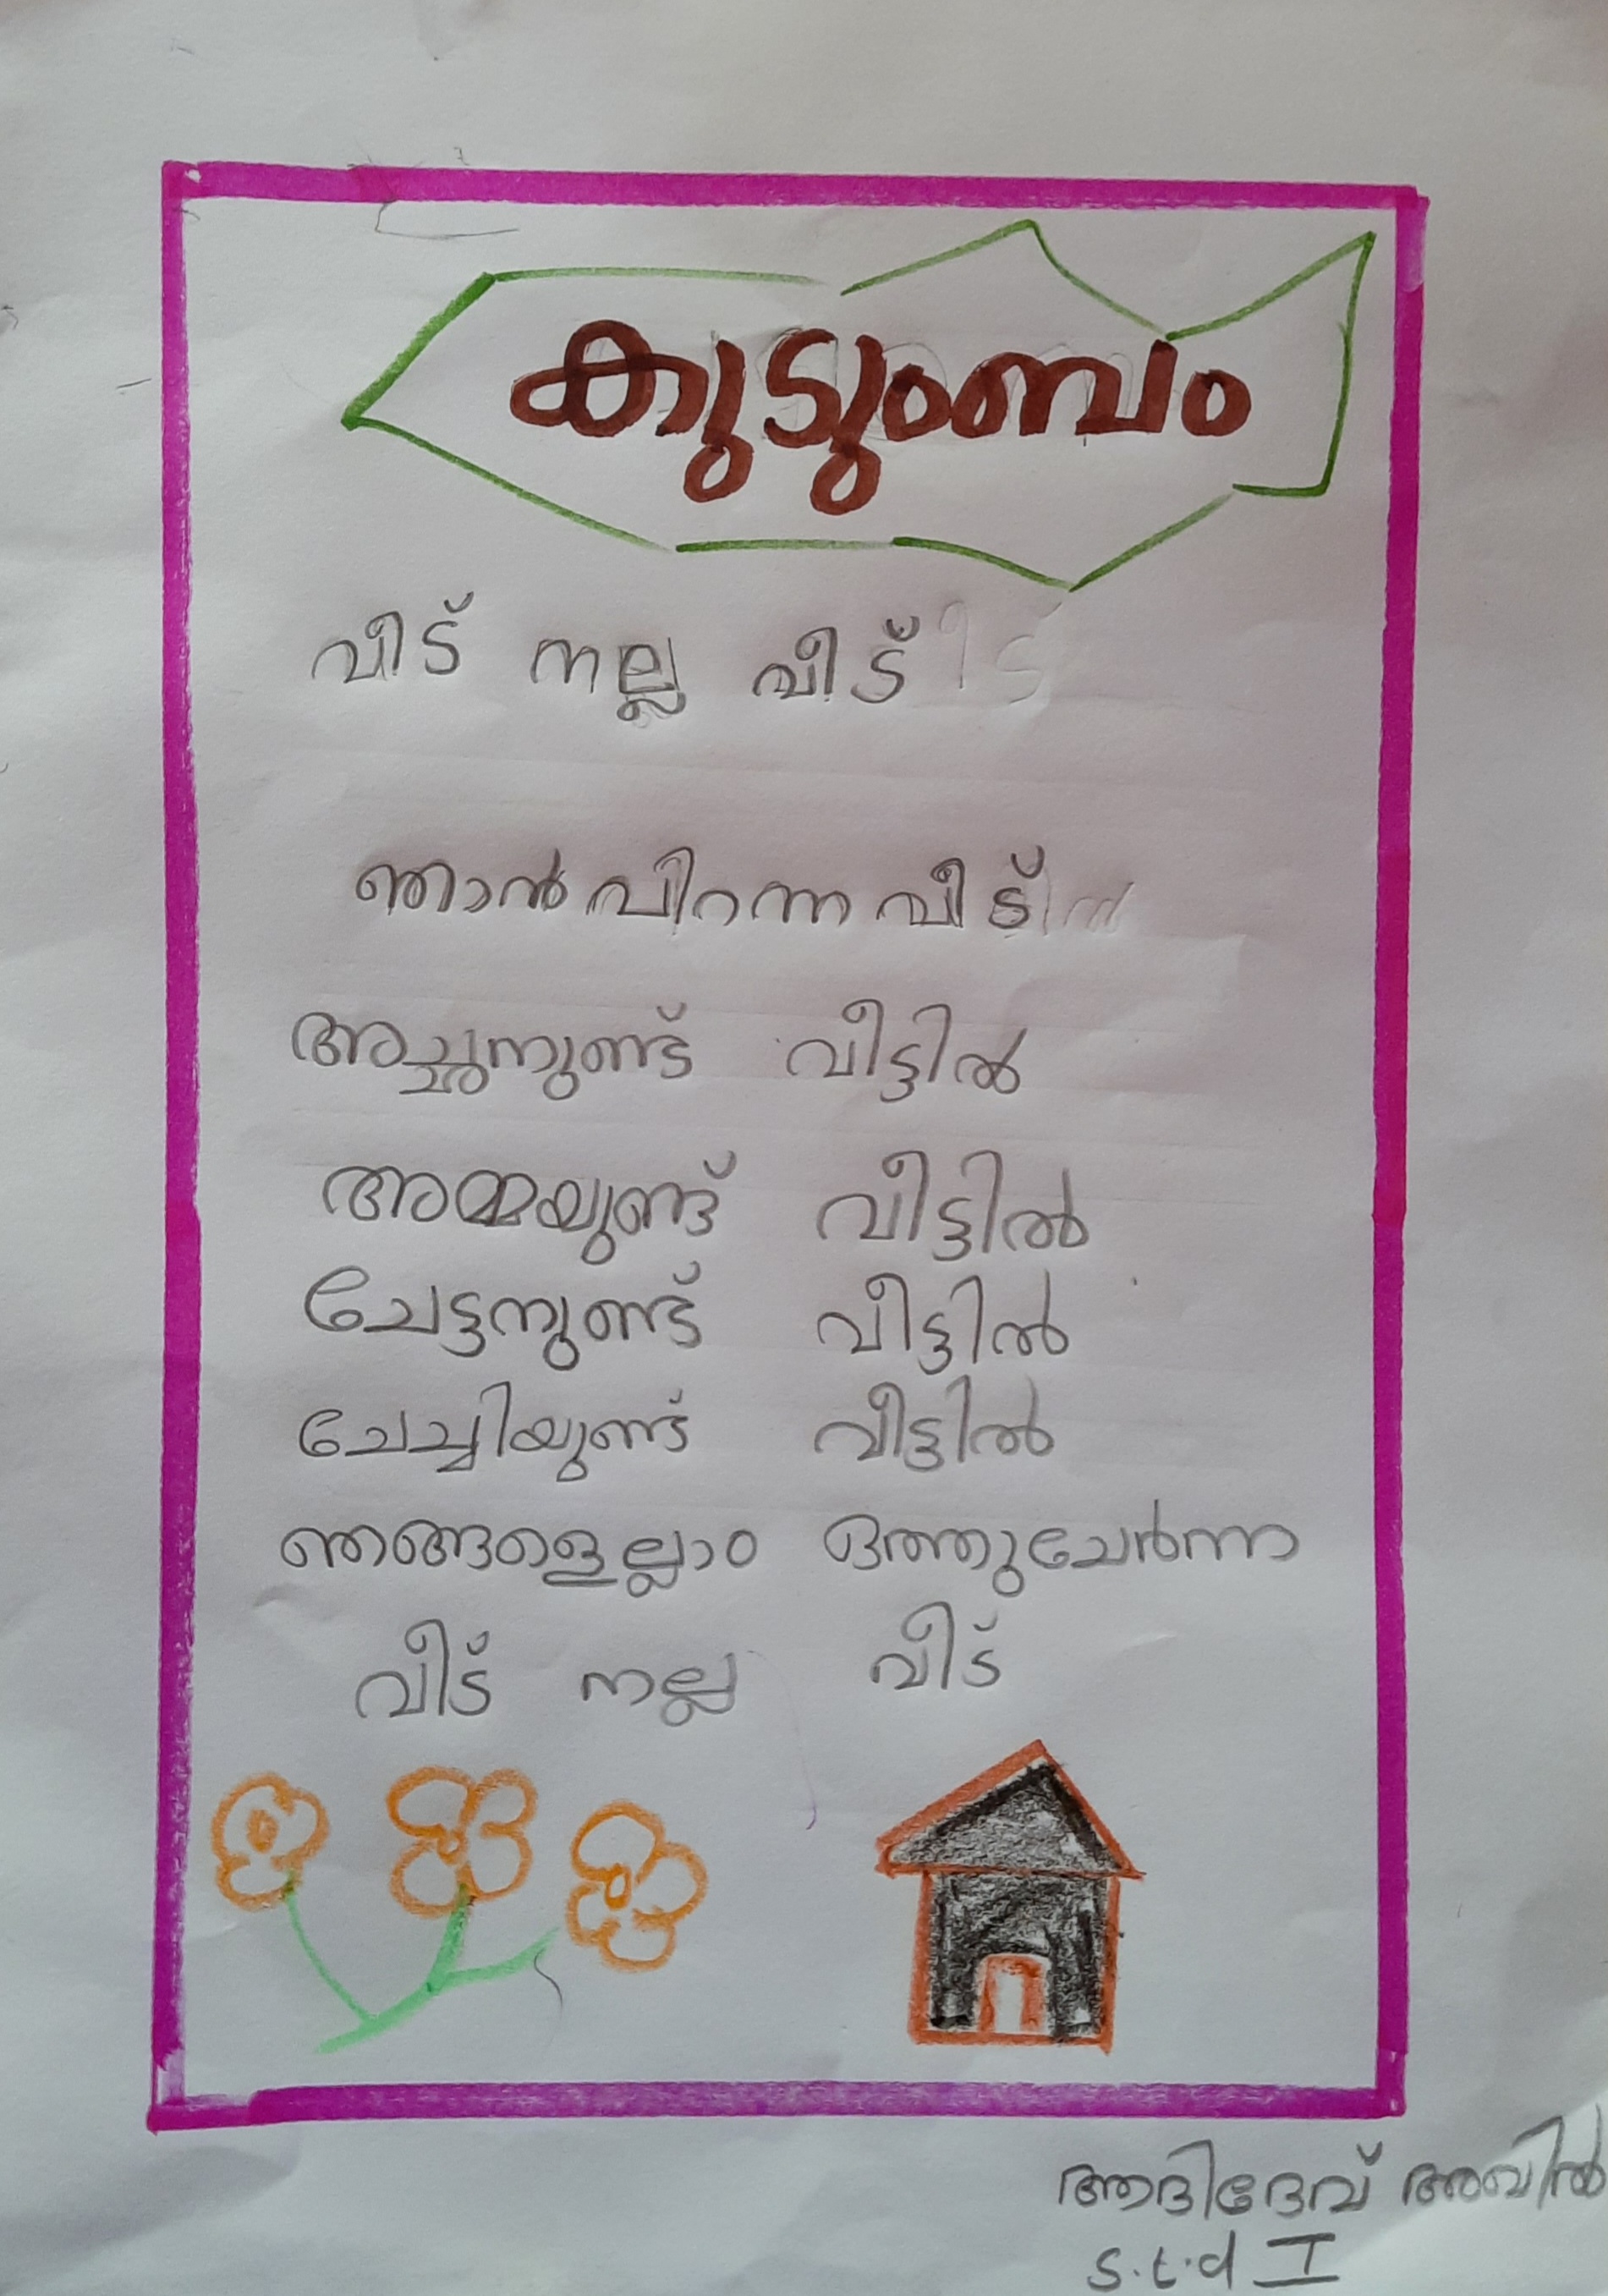 കുടുംബം
വീട് നല്ല വീട്
ഞാൻ പിറന്ന വീട്
അച്ഛനുണ്ട് വീട്ടിൽ
അമ്മയുണ്ട് വീട്ടിൽ
ചേട്ടനുണ്ട് വീട്ടിൽ
ചേച്ചിയുണ്ട് വീട്ടിൽ
ഞങ്ങളെല്ലാം ഒത്തുചേർന്ന
വീട് നല്ല വീട്
ആദിദേവ് അഖിൽ
s.t.d I